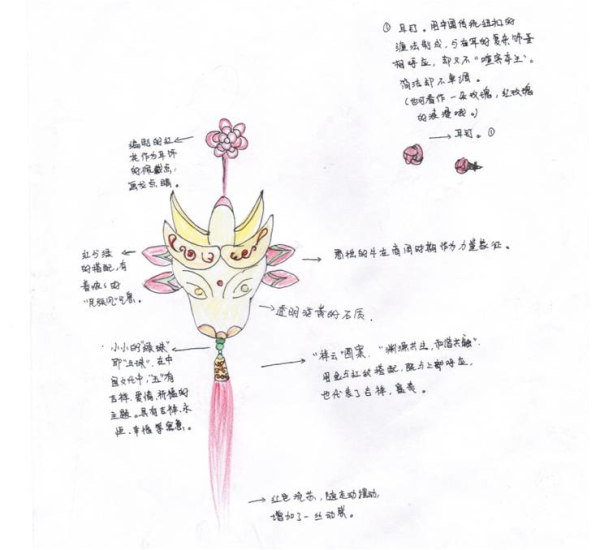 ① 耳钉。用中国传统纽扣的
编法制成，与右耳的复杂饰造
相呼应，却又不“喧宾夺主”。
简洁却不单调。
（也可看作一朵玫瑰，红玫瑰
的浪漫哦。）
→ 耳钉。①
编制的红
花作为耳饰
的佩戴点，
画龙点睛。
红与绿
的搭配，有
着浓浓的
“民族风”气息。
图腾的牛在商周时期作为力量象征。
透明淡黄的石质。
小小的“绿珠”
即“玉珠”，在中
国文化中，“玉”有
吉祥、爱情、祈福的
主题。具有吉祥、永
恒、幸福等寓意。
“祥云”图案。“渊源共生，和谐共融”.
用金点红的搭配，既与上部呼应，
也代表了吉祥，富贵。
红色流苏，随走动摆动，
增加了一丝动感。